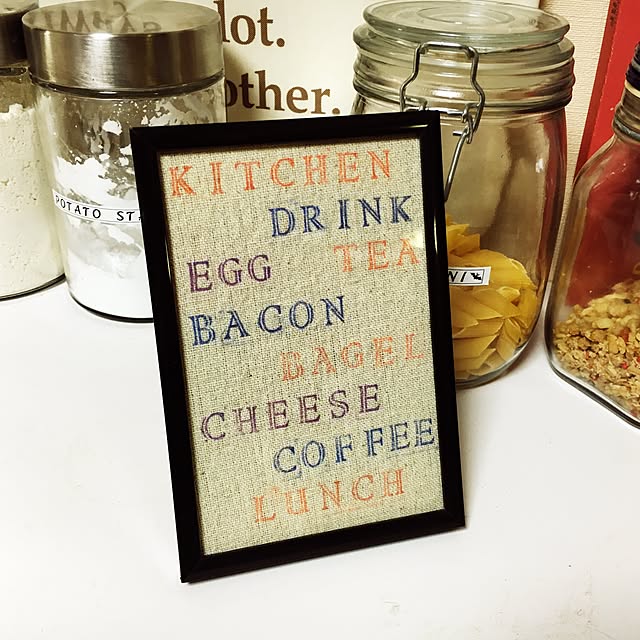 lot.
other.
POTATO STA
KITCHEN
DRINK
EGG TEA
BACON
BAGEL
CHEESE
COFFEE
LUNCH